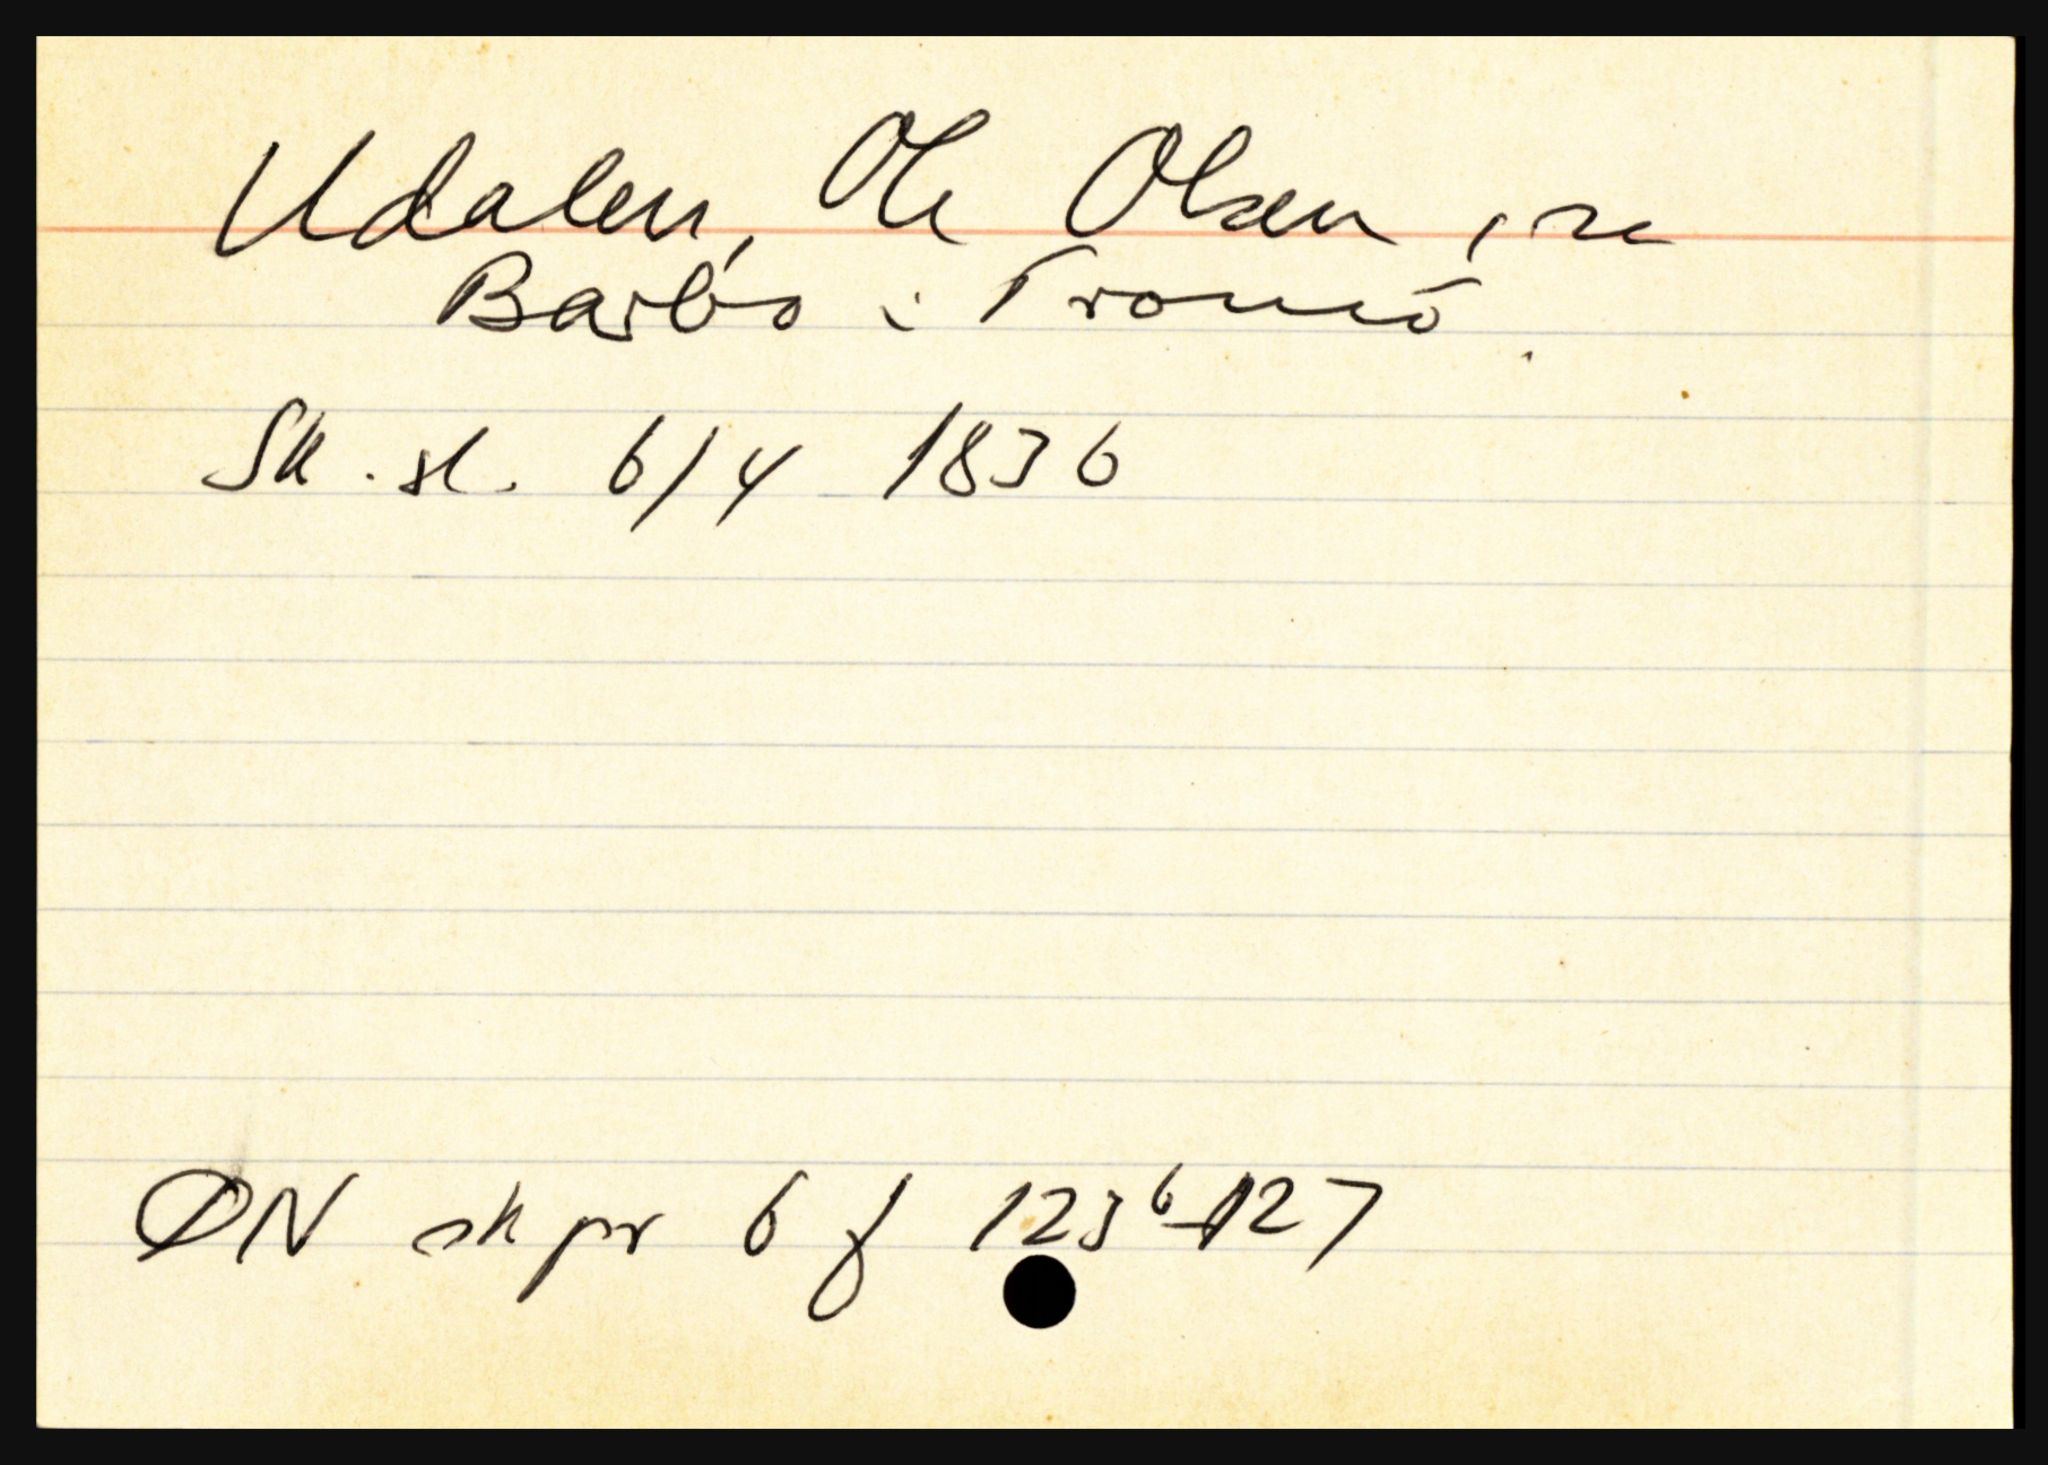 Udalen, Ole Olsen,
Barbo i Tromö.
Sk. sl. 6/4 1836
DN sk pr 6 f 123b-127